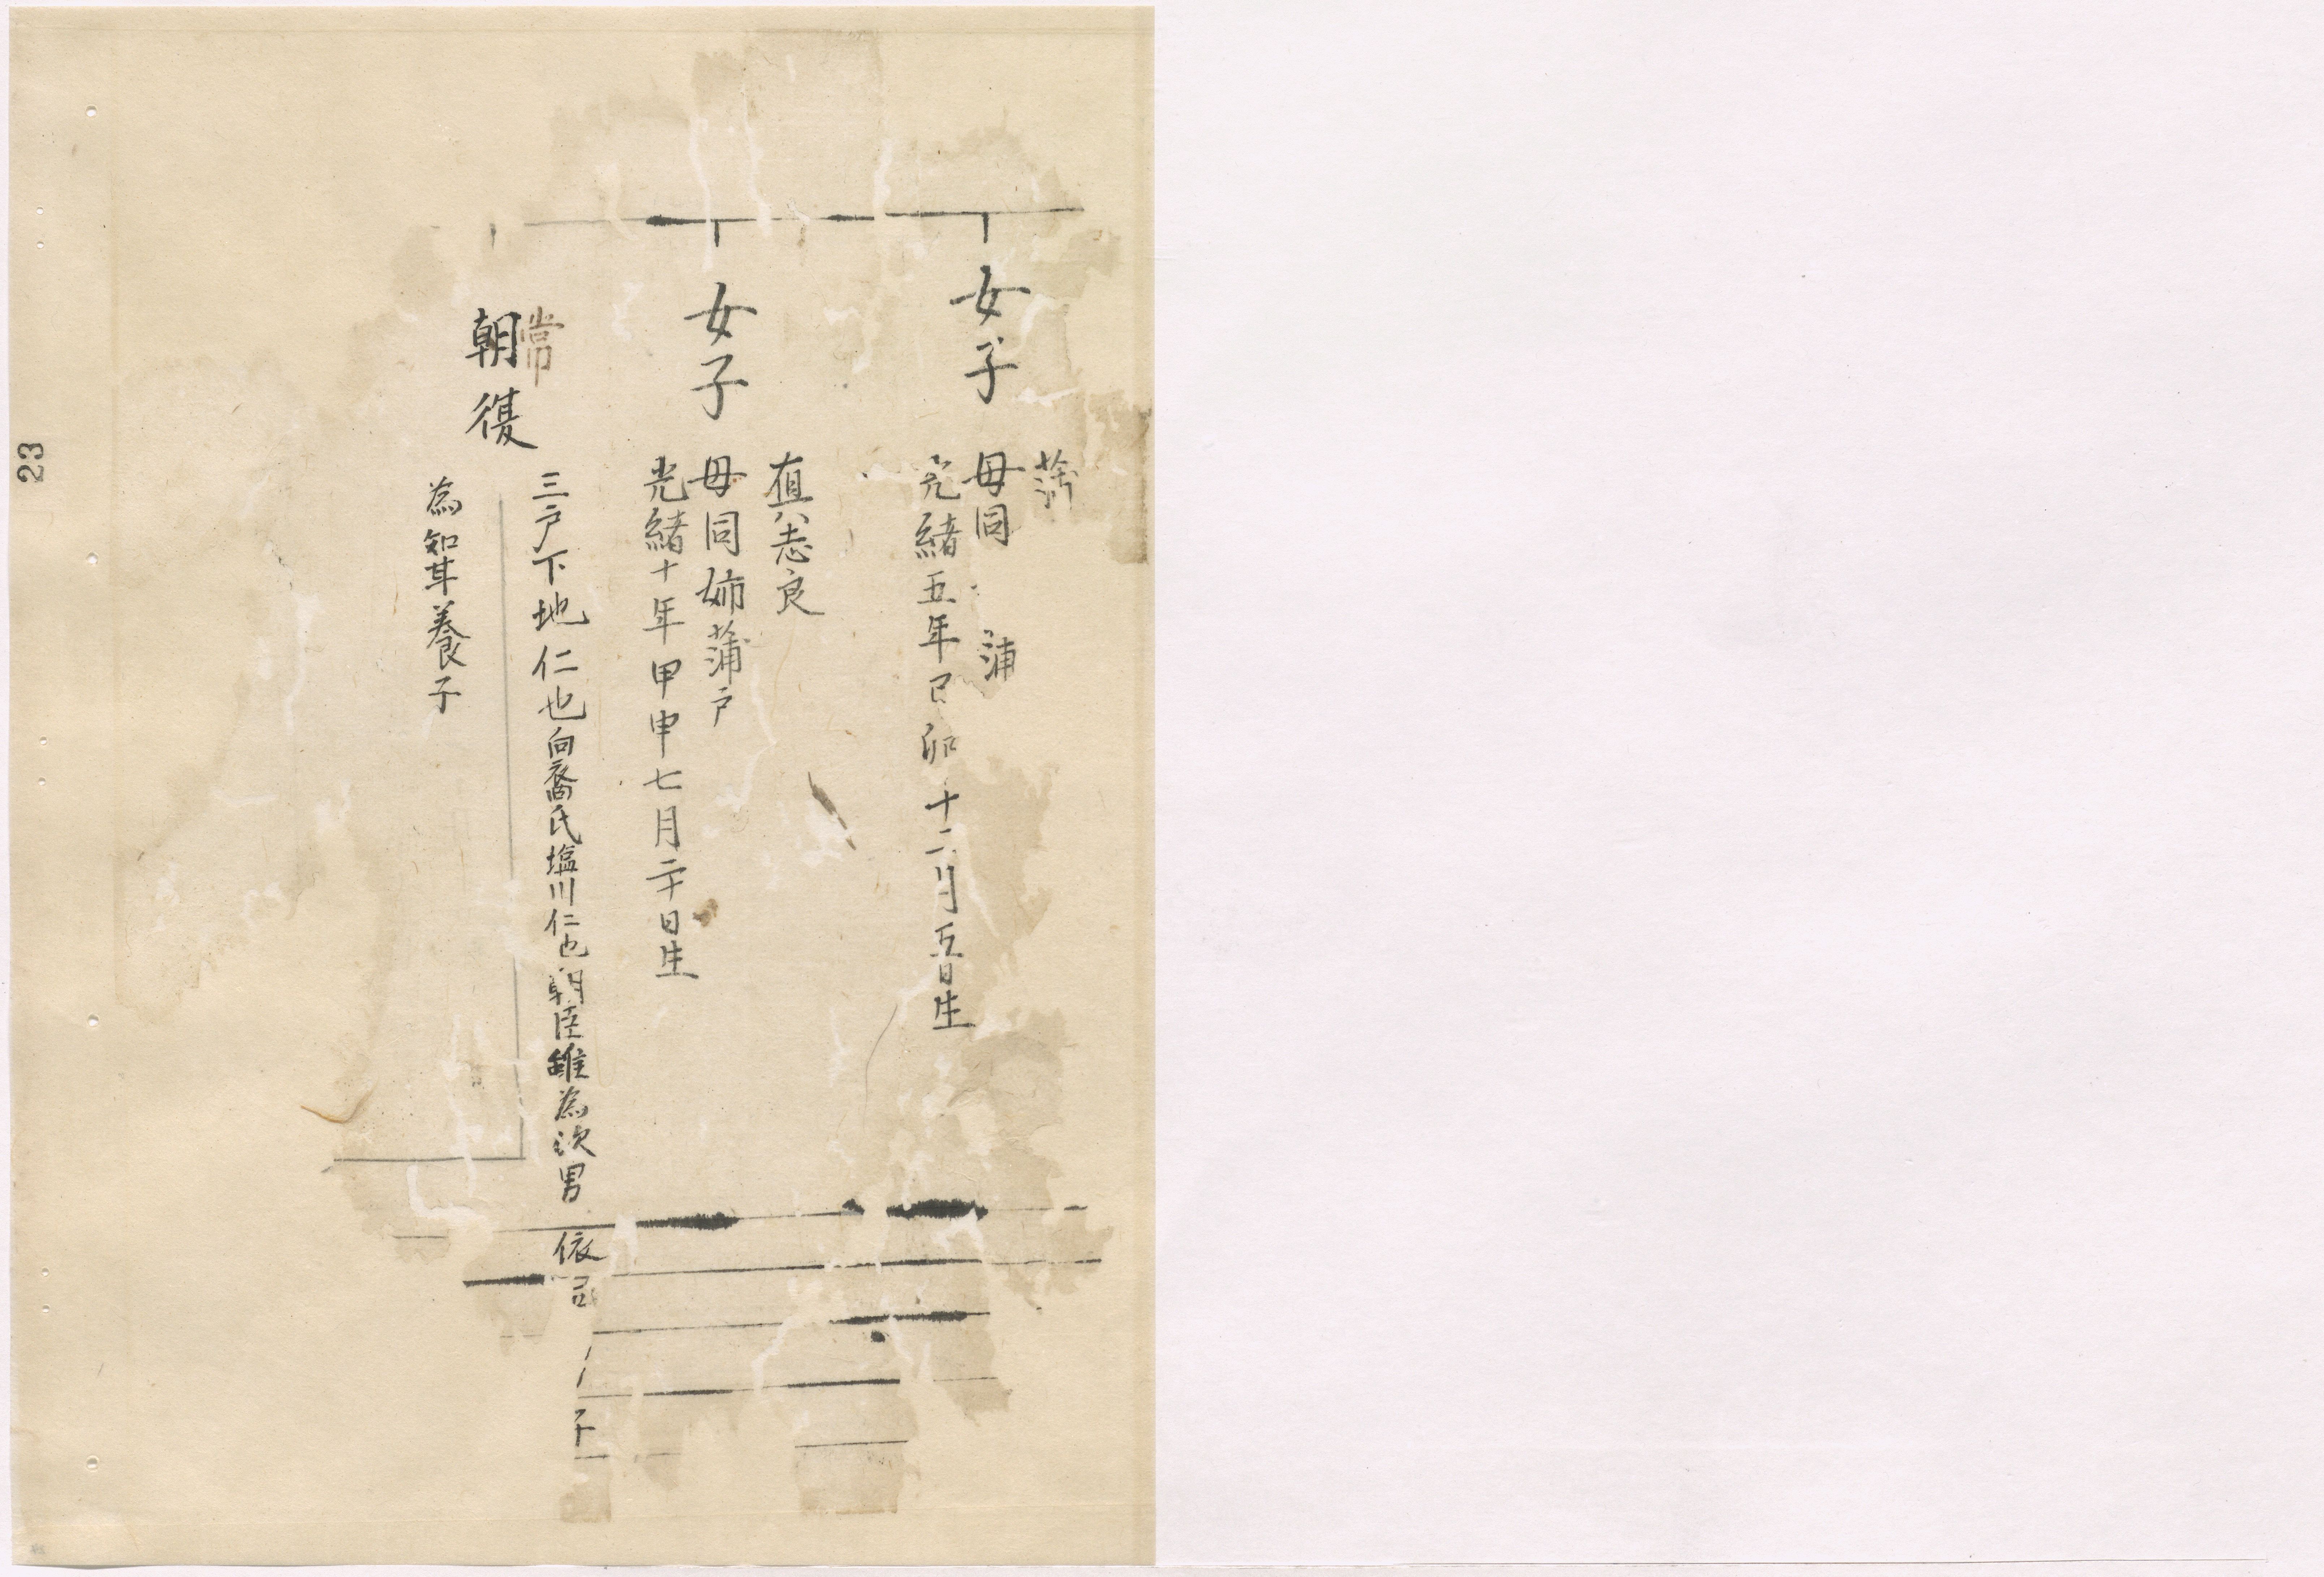 女子
蒲
母同 蒲
光緒五年己卯十二月五日生
女子
真志良
母同姉蒲戸
光緒十年甲申七月二十日生
常
朝復
三戸下地仁也向裔氏塩川仁也朝陞雖為次男依
子
為知耳養子
23